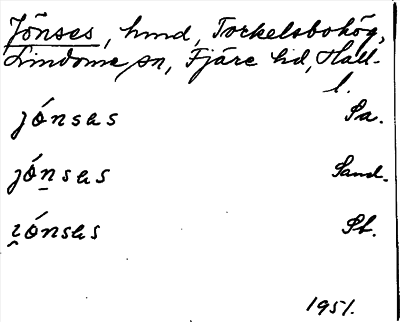 Jönses, hmd, Torkelsbohög,
Lindome sn, Fjäre hd, Hall.
l.
jónsɘs Sa.
jón̲sɘs Sand.
i̯ónsɘs St.
1951.